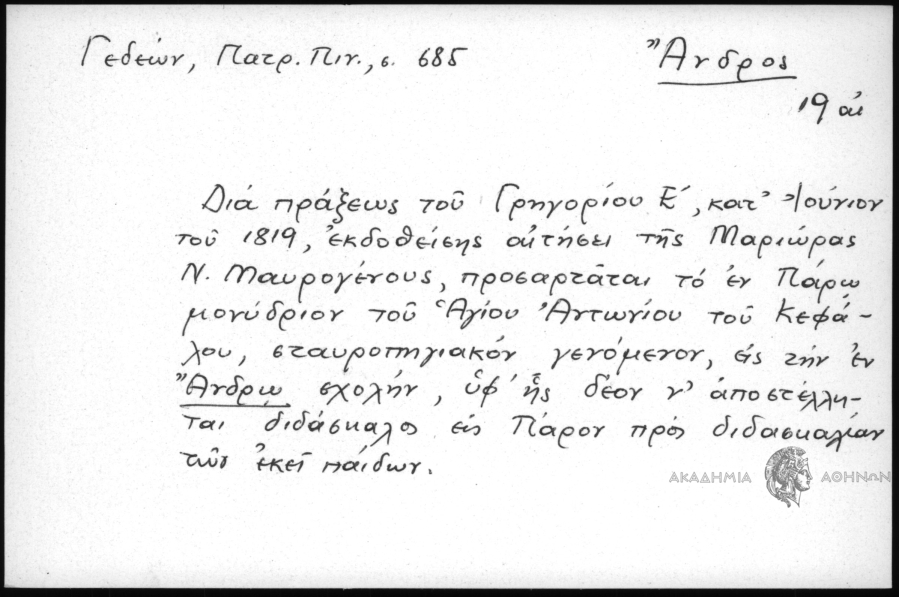 Γεδεών, Πατρ. Πιν., σ. 685
Ἄνδρος
19 αἰ
Διά πράξεως τοῦ Γρηγορίου Ε΄, κατ᾽ Ἰούνιον
τοῦ 1819, ἐκδοθείσης αἰτήσει τῆς Μαριώρας
Ν. Μαυρογένους, προσαρτᾶται τό ἐν Πάρῳ
μονύδριον τοῦ Ἁγίου Ἀντωνίου τοῦ Κεφά-
λου, σταυροπηγιακόν γενόμενον, εἰς τήν ἐν
Ἄνδρῳ σχολήν, ὑφ᾽ ἧς δέον ν᾽ ἀποστέλλη-
ται διδάσκαλος εἰς Πάρον πρός διδασκαλίαν
τῶν ἐκεῖ παίδων.
ΑΚΑΔΗΜΙΑ ΑΘΗΝΩΝ